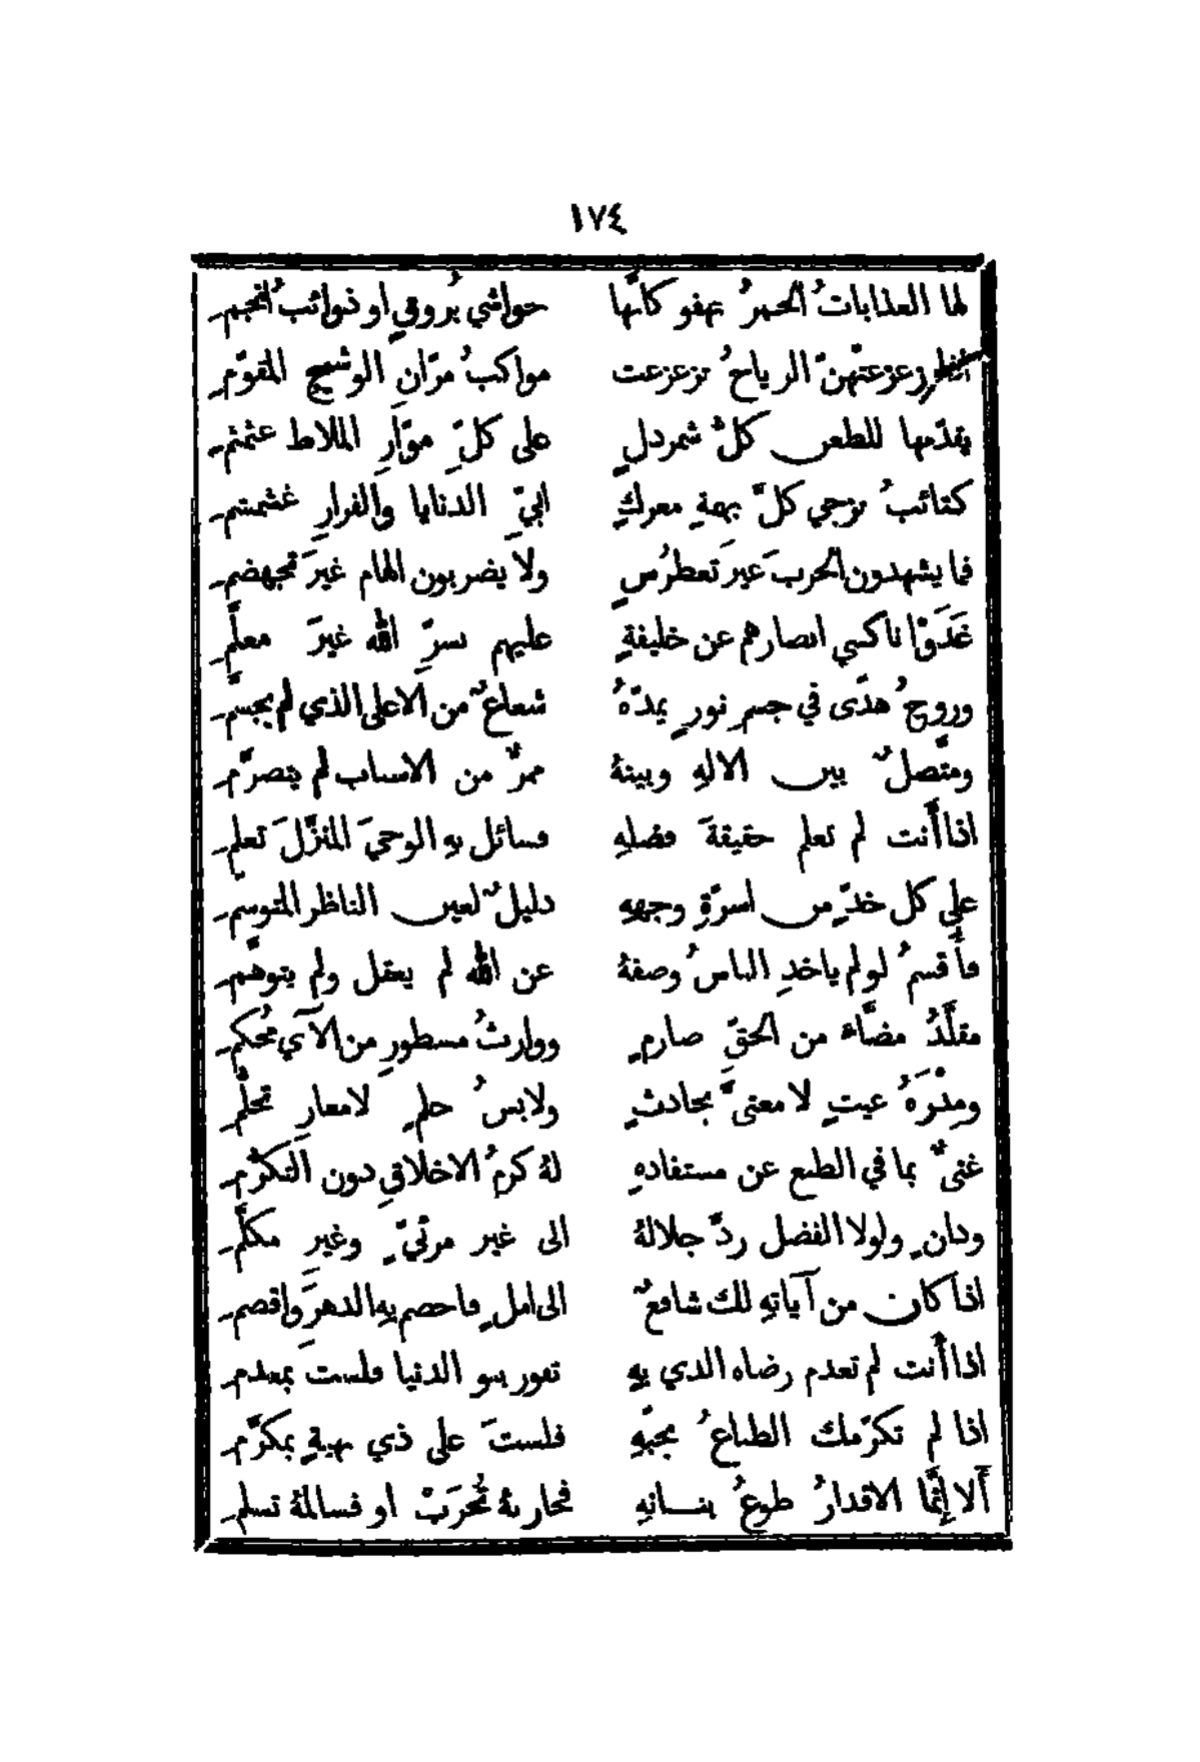 ١٧٤
لها العذاباتُ الحمرُ تهفو كانَّها حواشي بُروقٍ او ذوائبُ انجمِ
زعزعتهنّ الرياحُ تزعزعت مواكبُ مرّانِ الوشيجِ المقوّمِ
يقدّمها للطعن كلُّ شمردلٍ على كلِّ موّارِ الملاط عثمثمِ
كتائبُ تزجي كلَّ بهمةِ معركٍ ابيِّ الدنايا والفرارِ غشمشمِ
فما يشهدون الحربَ غيرَ تغطرُسٍ ولا يضربون الهام غيرَ تجهضمِ
غَدَوْا ناكسي ابصارهم عن خليفةٍ عليهم بسرِّ الله غيرَ معلَّمِ
وروحُ هدًى في جسمِ نورٍ يمدّهُ شعاعٌ من الاعلى الذي لم يجسَّمِ
ومتَّصلٌ بين الالهِ وبينهُ ممرٌّ من الاسباب لم يتصرَّمِ
اذا أَنت لم تعلم حقيقةَ فضلهِ فسائل بهِ الوحيَ المنزَّلَ تعلمِ
على كل خدٍّ من اسرّةِ وجههِ دليلٌ لعين الناظر المتوسّمِ
فأَقسمُ لو لم ياخذِ الناسُ وصفهُ عن الله لم يعقل ولم يتوهَّمِ
مقلَّدُ مضَّاء من الحقِّ صارمٍ ووارثُ مسطورٍ من الآيِ مُحكمِ
ومِدْرَهُ غيبٍ لا معنىً بحادثٍ ولابسُ حلمٍ لا معارِ تحلُّمِ
غنىٌّ بما في الطبع عن مستفادهِ لهُ كرمُ الاخلاقِ دون التكرُّمِ
ودانٍ ولولا الفضل ردَّ جلالهُ الى غير مرئيٍّ وغيرِ مكلَّمِ
اذا كان من آياتهِ لك شافعٌ الى املٍ فاخصم بهِ الدهرَ واقصمِ
اذا أَنت لم تعدم رضاه الذي بهِ تفوز بنو الدنيا فلست بمعدمِ
اذا لم تكرّمك الطباعُ بحبّهِ فلستَ على ذي نهيةٍ بمكرَّمِ
أَلا إِنَّما الاقدارُ طوعُ بنانهِ فحاربهُ تُحْرَبْ او فسالمهُ تسلمِ